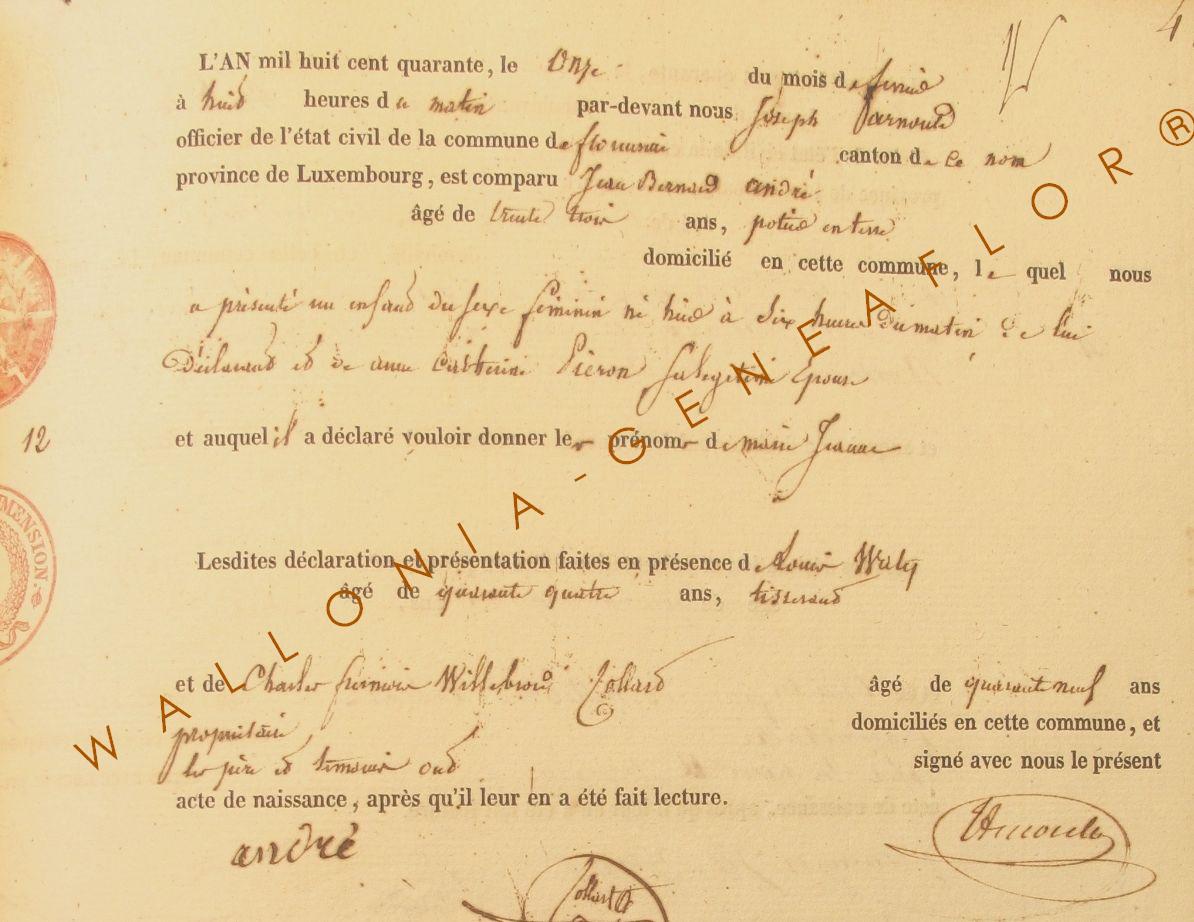 L'AN mil huit cent quarante, le onze du mois de fevrié
à huid heures de matin par-devant nous Joseph
officier de l'état civil de la commune de canton de ce nom
province de Luxembourg, est comparu Jean Bernard andré
âgé de trente trois ans, potié en terre
domicilié en cette commune, le quel nous
a présenté un enfand du sexe féminin né hier à Six heures du matin de lui
Déclarand et de anne Catherine Pieron Sa legitime Epouse
et auquel il a déclaré vouloir donner les prénoms de marie Jeanne
12
Lesdites déclaration et présentation faites en présence de Louis
âgé de quarante quatre ans, tisserand
et de Charles Willebrord Collard âgé de quarant neuf ans
propriétaire domiciliés en cette commune, et
les père et temoins ond signé avec nous le présent
acte de naissance, après qu'il leur en a été fait lecture.
andré
MENSION.
WALLONIA-GENEAFLOR®